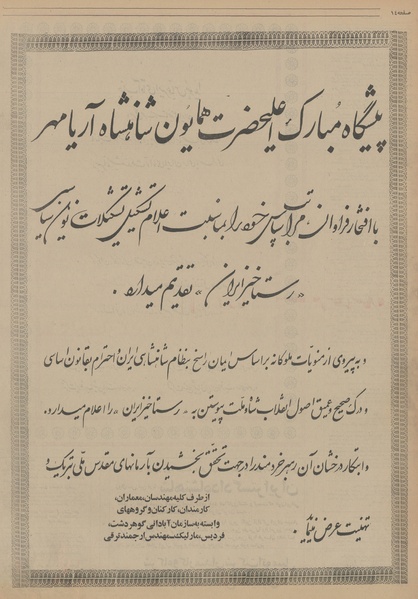 صفحه ۱۴
پیشگاه مبارک اعلیحضرت همایون شاهنشاه آریامهر
با افتخار فراوان مراتب سپاس خود را بمناسبت اعلام تشکیل تشکیلات نوین سیاسی
« رستاخیز ایران » تقدیم میدارد .
و به پیروی از منویات ملوکانه بر اساس ایمان راسخ بنظام شاهنشاهی ایران و احترام بقانون اساسی
و درک صحیح و عمیق اصول انقلاب شاه و ملت پیوستن به « رستاخیز ایران » را اعلام میدارد .
و ابتکار درخشان آن رهبر خردمند را در جهت تحقق بخشیدن بآرمانهای مقدس ملی تبریک و
تهنیت عرض مینماید .
از طرف کلیه مهندسان، معماران،
کارمندان، کارکنان و گروههای
وابسته به سازمان آبادانی گوهردشت،
فردیس، مارلیک: مهندس ارجمند ترقی